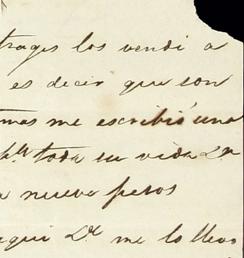 trages los vendi a
es decir que son
mas me escribió una
toda su vida
nueve pesos
aqui me lo llevo